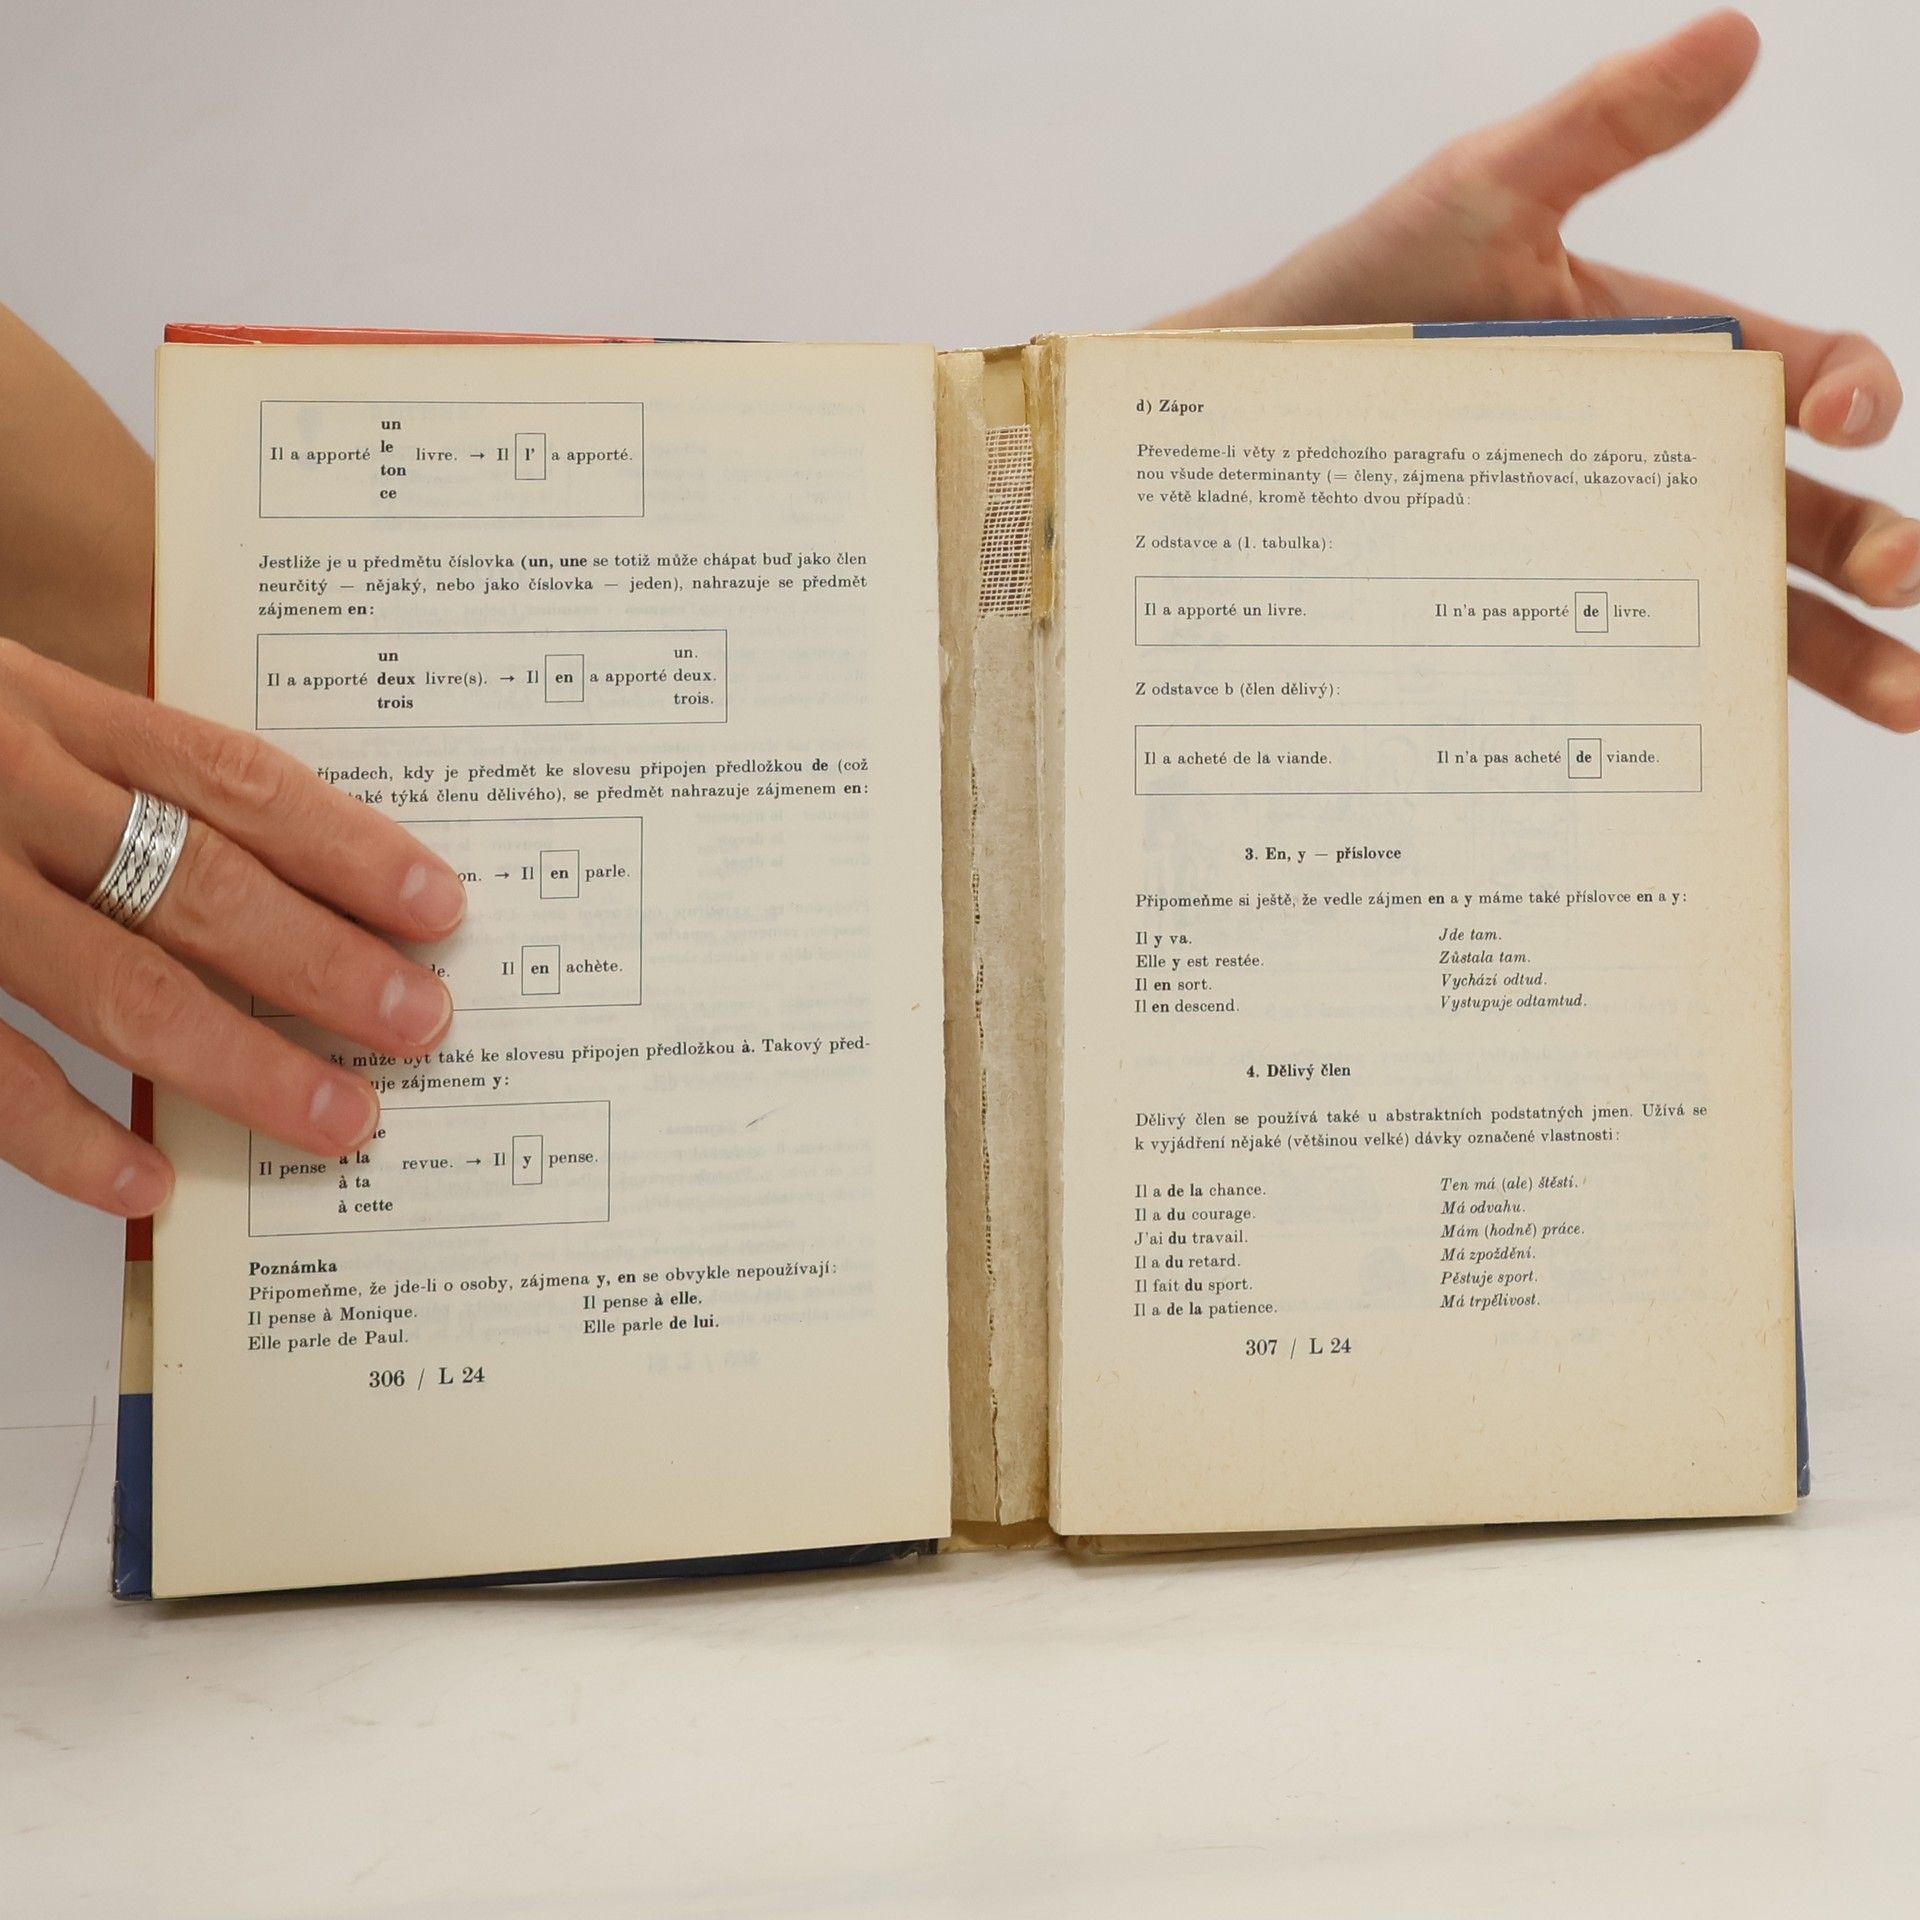 un
le
Il a apporté livre. → Il l' a apporté.
ton
ce
Jestliže je u předmětu číslovka (un, une se totiž může chápat buď jako člen
neurčitý — nějaký, nebo jako číslovka — jeden), nahrazuje se předmět
zájmenem en:
un un.
Il a apporté deux livre(s). → Il en a apporté deux.
trois trois.
kdy je předmět ke slovesu připojen předložkou de (což
týká členu dělivého), se předmět nahrazuje zájmenem en:
→ Il en parle.
Il en achète.
může být také ke slovesu připojen předložkou à. Takový před-
zájmenem y:
à la
Il pense revue. → Il y pense.
à ta
à cette
Poznámka
Připomeňme, že jde-li o osoby, zájmena y, en se obvykle nepoužívají:
Il pense à Monique. Il pense à elle.
Elle parle de Paul. Elle parle de lui.
306 / L 24
d) Zápor
Převedeme-li věty z předchozího paragrafu o zájmenech do záporu, zůsta-
nou všude determinanty (= členy, zájmena přivlastňovací, ukazovací) jako
ve větě kladné, kromě těchto dvou případů:
Z odstavce a (1. tabulka):
Il a apporté un livre. Il n'a pas apporté de livre.
Z odstavce b (člen dělivý):
Il a acheté de la viande. Il n'a pas acheté de viande.
3. En, y — příslovce
Připomeňme si ještě, že vedle zájmen en a y máme také příslovce en a y:
Il y va. Jde tam.
Elle y est restée. Zůstala tam.
Il en sort. Vychází odtud.
Il en descend. Vystupuje odtamtud.
4. Dělivý člen
Dělivý člen se používá také u abstraktních podstatných jmen. Užívá se
k vyjádření nějaké (většinou velké) dávky označené vlastnosti:
Il a de la chance. Ten má (ale) štěstí.
Il a du courage. Má odvahu.
J'ai du travail. Mám (hodně) práce.
Il a du retard. Má zpoždění.
Il fait du sport. Pěstuje sport.
Il a de la patience. Má trpělivost.
307 / L 24